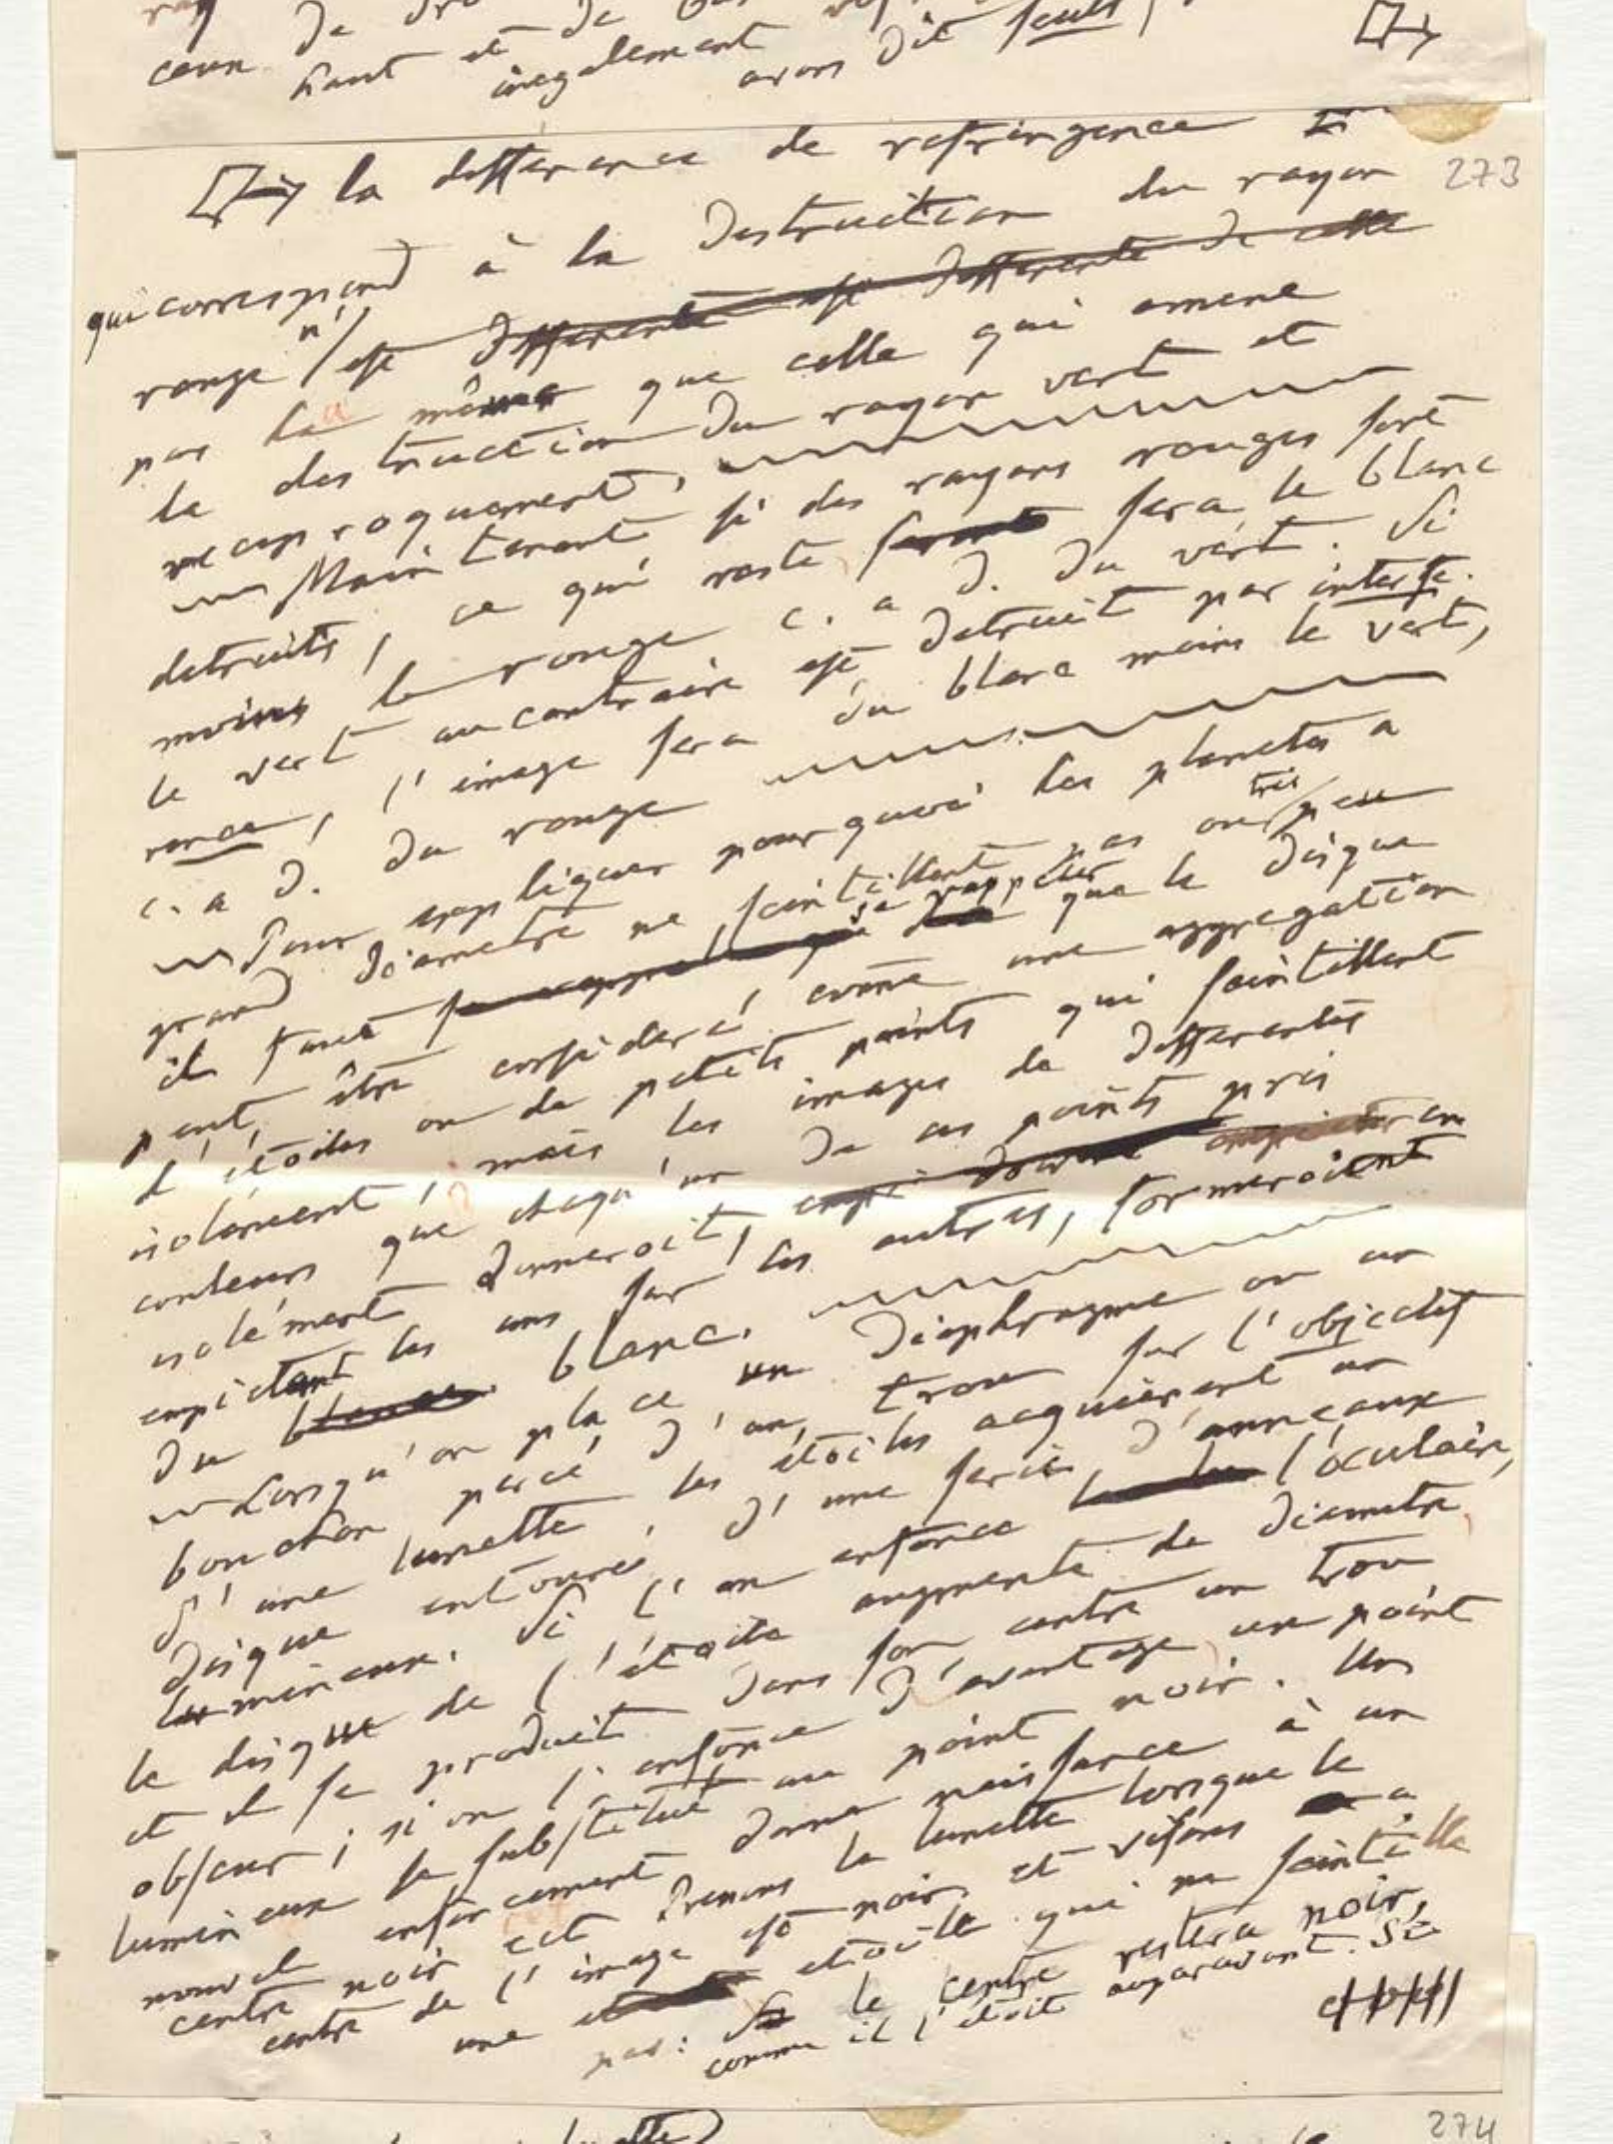 ceux de de
haut et de
inegalement
avons dit seuls,
la difference de refringence
273
qui correspond à la Destruction du rayon
rouge n'est differente est differente de celle
pas la même que celle qui amene
la destruction Du rayon vert et
reciproquement,
Maintenant si des rayons rouges sont
detruits, ce qui reste seront sera le blanc
moins le rouge c. a D. Du vert. Si
le vert au contraire est Detruit par interfe-
rence, l'image sera du blanc moins le vert,
c. a D. Du rouge
Pour expliquer pourquoi les planetes a
grand Diametre ne scintillent pas ou très peu
il faut se rappeler que se rappeler que le Disque
peut être consideré come une aggregation
d'étoiles ou de petits points qui scintillent
isolément, mais les images de Differentes
couleurs que chaqu'un De ces points pris
isolément Donneroit, empietant
empietant les uns sur les autres, formeroient
Du blanc. blanc.
Lorsqu'on place un Diaphragme ou un
bouchon percé D'un trou sur l'objectif
D'une lunette les étoiles acquierent un
Disque entouré D'une serie D'anneaux
lumineux. Si l'on enfonce l'oculaire,
le disque de l'étoile augmente de Diametre
et il se produit Dans son centre un trou
obscur; si on l'enfonce D'avantage un point
lumineux se substitue au point noir. Un
nouvel enfoncement Donne naissance à un
centre noir ect Prenons la lunette lorsque le
centre de l'image est noir, et visons a
une etoile qui ne scintille
pas: le centre restera noir,
comme il l'étoit auparavant. Si
274